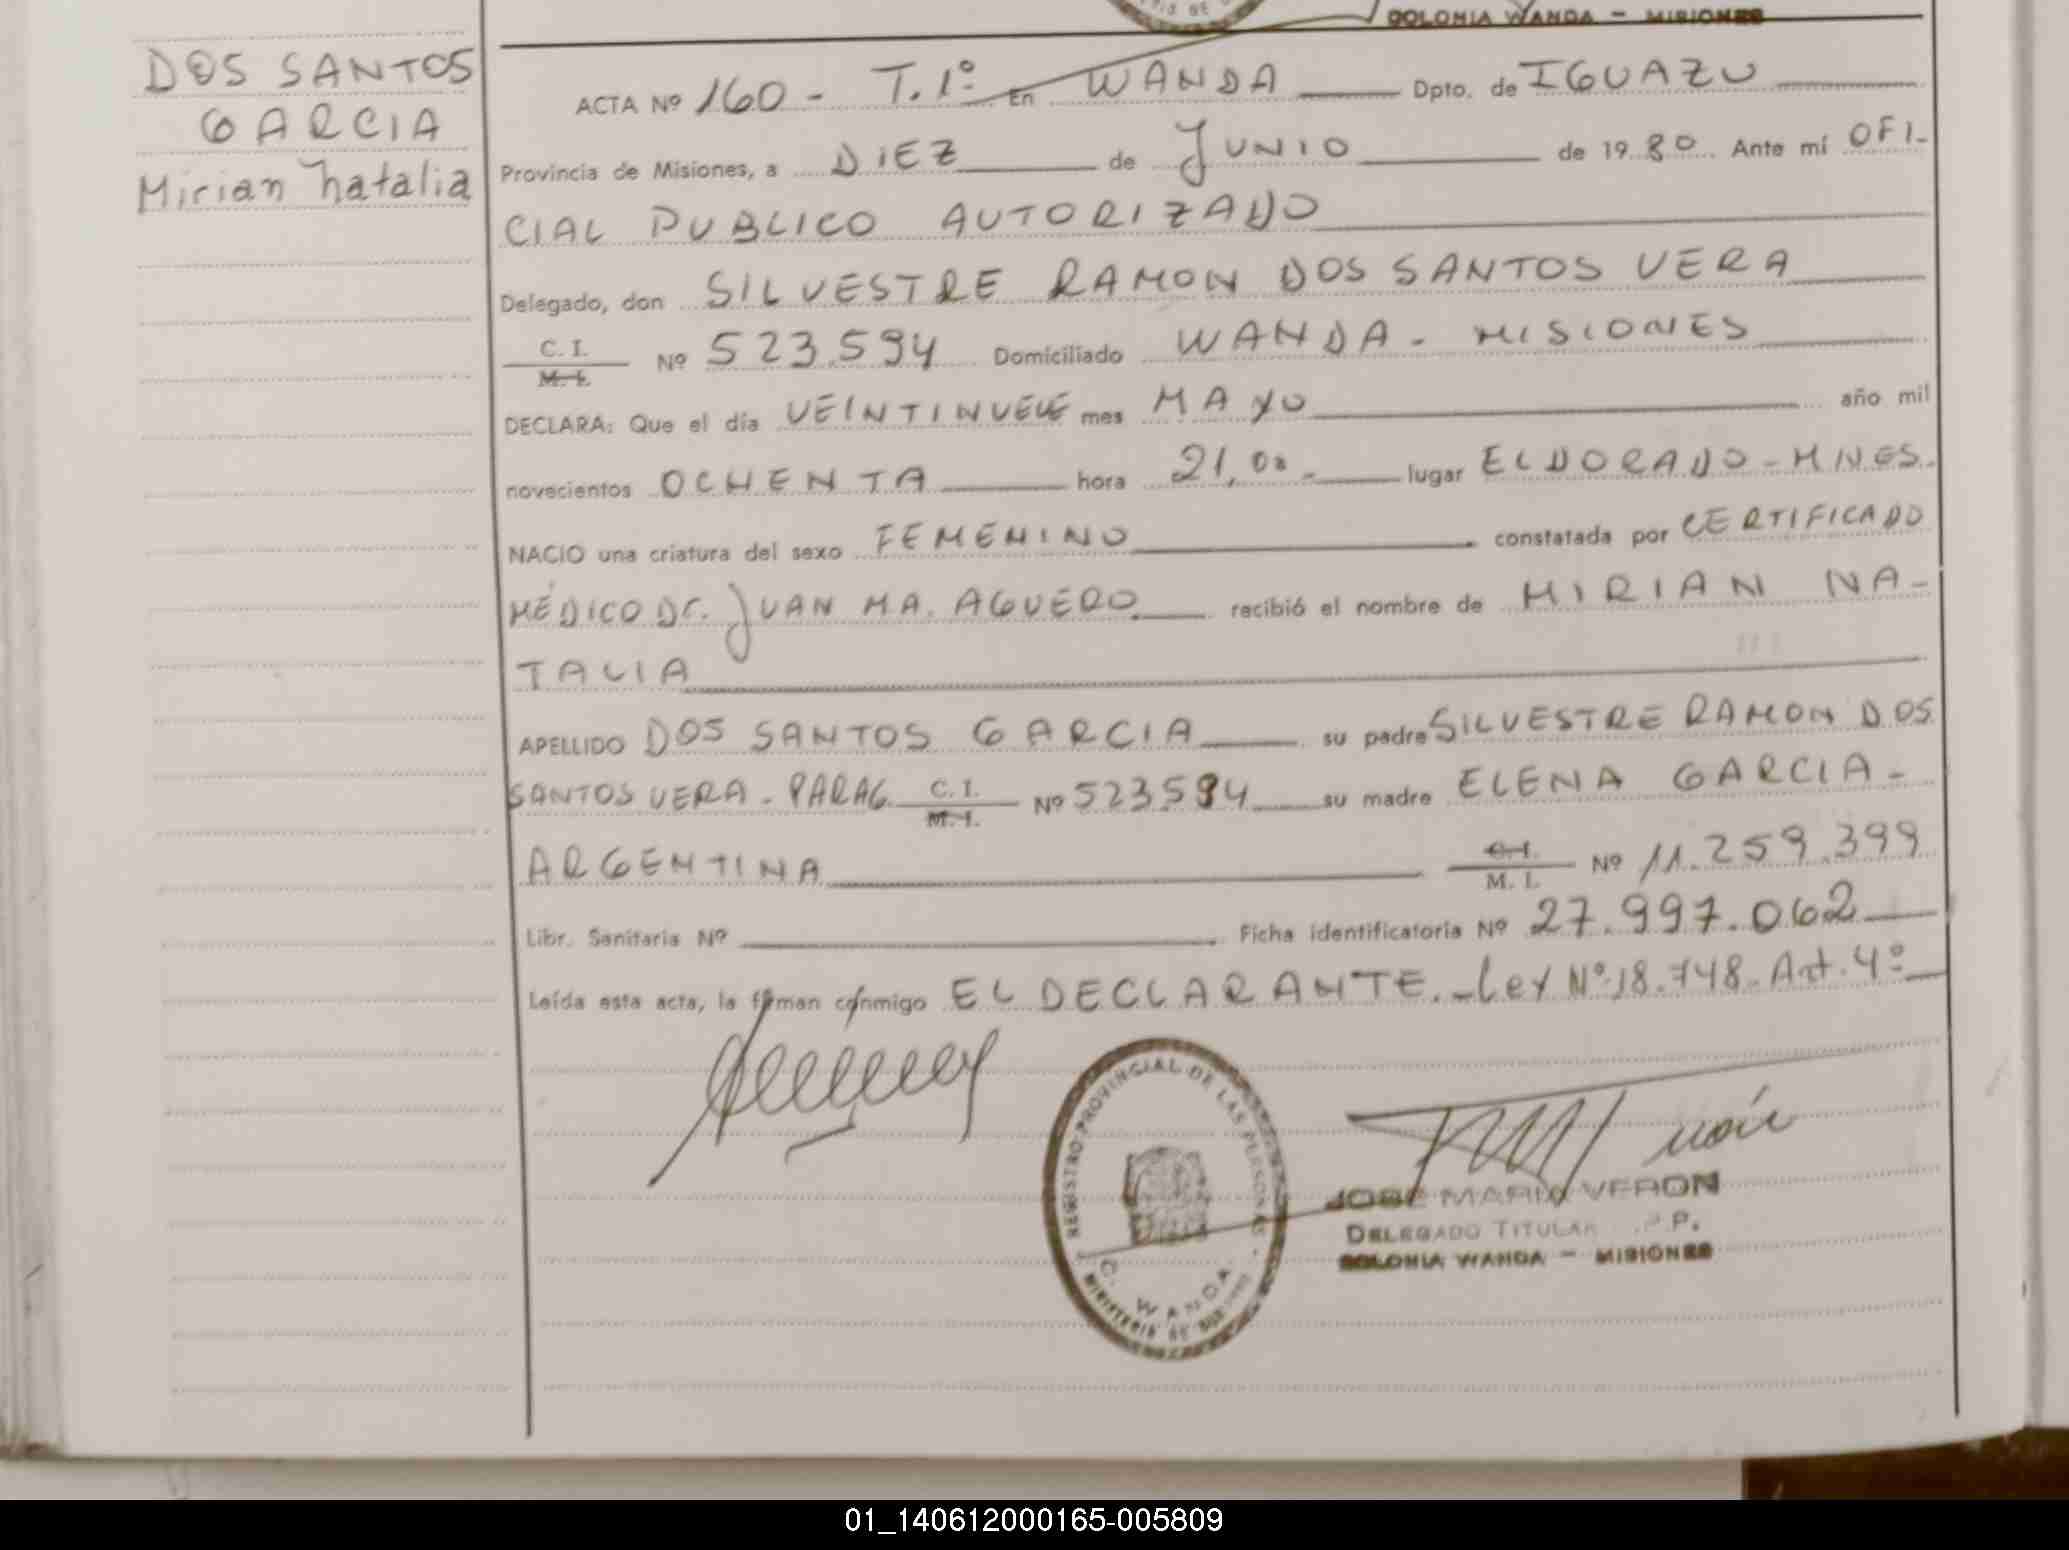 COLONIA WANDA - MISIONES
DOS SANTOS
GARCIA
Mirian Natalia
ACTA Nº 160 - T. 1º En WANDA Dpto. de IGUAZU
Provincia de Misiones, a DIEZ de JUNIO de 1980 Ante mí OFI-
CIAL PUBLICO AUTORIZADO
Delegado, don SILVESTRE RAMON DOS SANTOS VERA
C. I.
M. I. Nº 523.594 Domiciliado WANDA - MISIONES
DECLARA: Que el día VEINTINUEVE mes MAYO año mil
novecientos OCHENTA hora 21,00 - lugar ELDORADO - MNES.
NACIO una criatura del sexo FEMENINO constatada por CERTIFICADO
MÉDICO Dr. JUAN MA. AGUERO recibió el nombre de MIRIAN NA-
TALIA
APELLIDO DOS SANTOS GARCIA su padre SILVESTRE RAMON DOS
SANTOS VERA - PARAG. C. I.
M. I. Nº 523.594 su madre ELENA GARCIA -
ARGENTINA C. I.
M. I. Nº 11.259.399
Libr. Sanitaria Nº Ficha identificatoria Nº 27.997.062
Leída esta acta, la firman conmigo EL DECLARANTE. - Ley Nº 18.748 - Art. 4º
REGISTRO PROVINCIAL DE LAS PERSONAS
C. WANDA
MINISTERIO DE
JOSE MARIA VERON
DELEGADO TITULAR P.
COLONIA WANDA - MISIONES
01_140612000165-005809